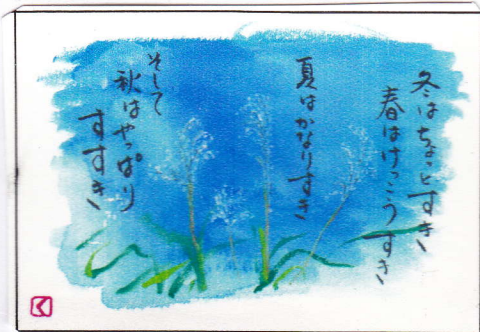 冬はちょっとすき
春はけっこうすき
夏はかなりすき
そして
秋はやっぱり
すすき
く